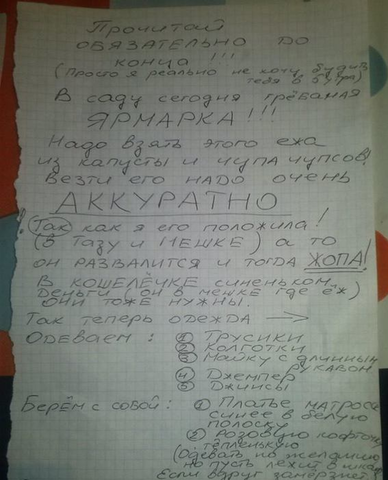 Прочитай
ОБЯЗАТЕЛЬНО ДО
конца!!!
(Просто я реально не хочу будить
тебя в 5 утра)
В саду сегодня грёбаная
ЯРМАРКА!!!
Надо взять этого ежа
из капусты и чупа чупсов!
Везти его НАДО очень
АККУРАТНО
! (Так) как я его положила!
(В тазу и МЕШКЕ) а то
он РАЗВАЛИТСЯ и тогда ЖОПА!
В кошелёчке синеньком
деньги (он в мешке где ёж)
они тоже нужны.
Так теперь одежда →
Одеваем: ① Трусики
② Колготки
③ Майку с длинным
рукавом
④ Джемпер
⑤ Джинсы
Берём с собой: ① Платье матроса
синее в белую
полоску
② Розовую кофточку
тёпленькую
(Одевать по желанию
но пусть лежит в шкафу
Если вдруг замёрзнет)